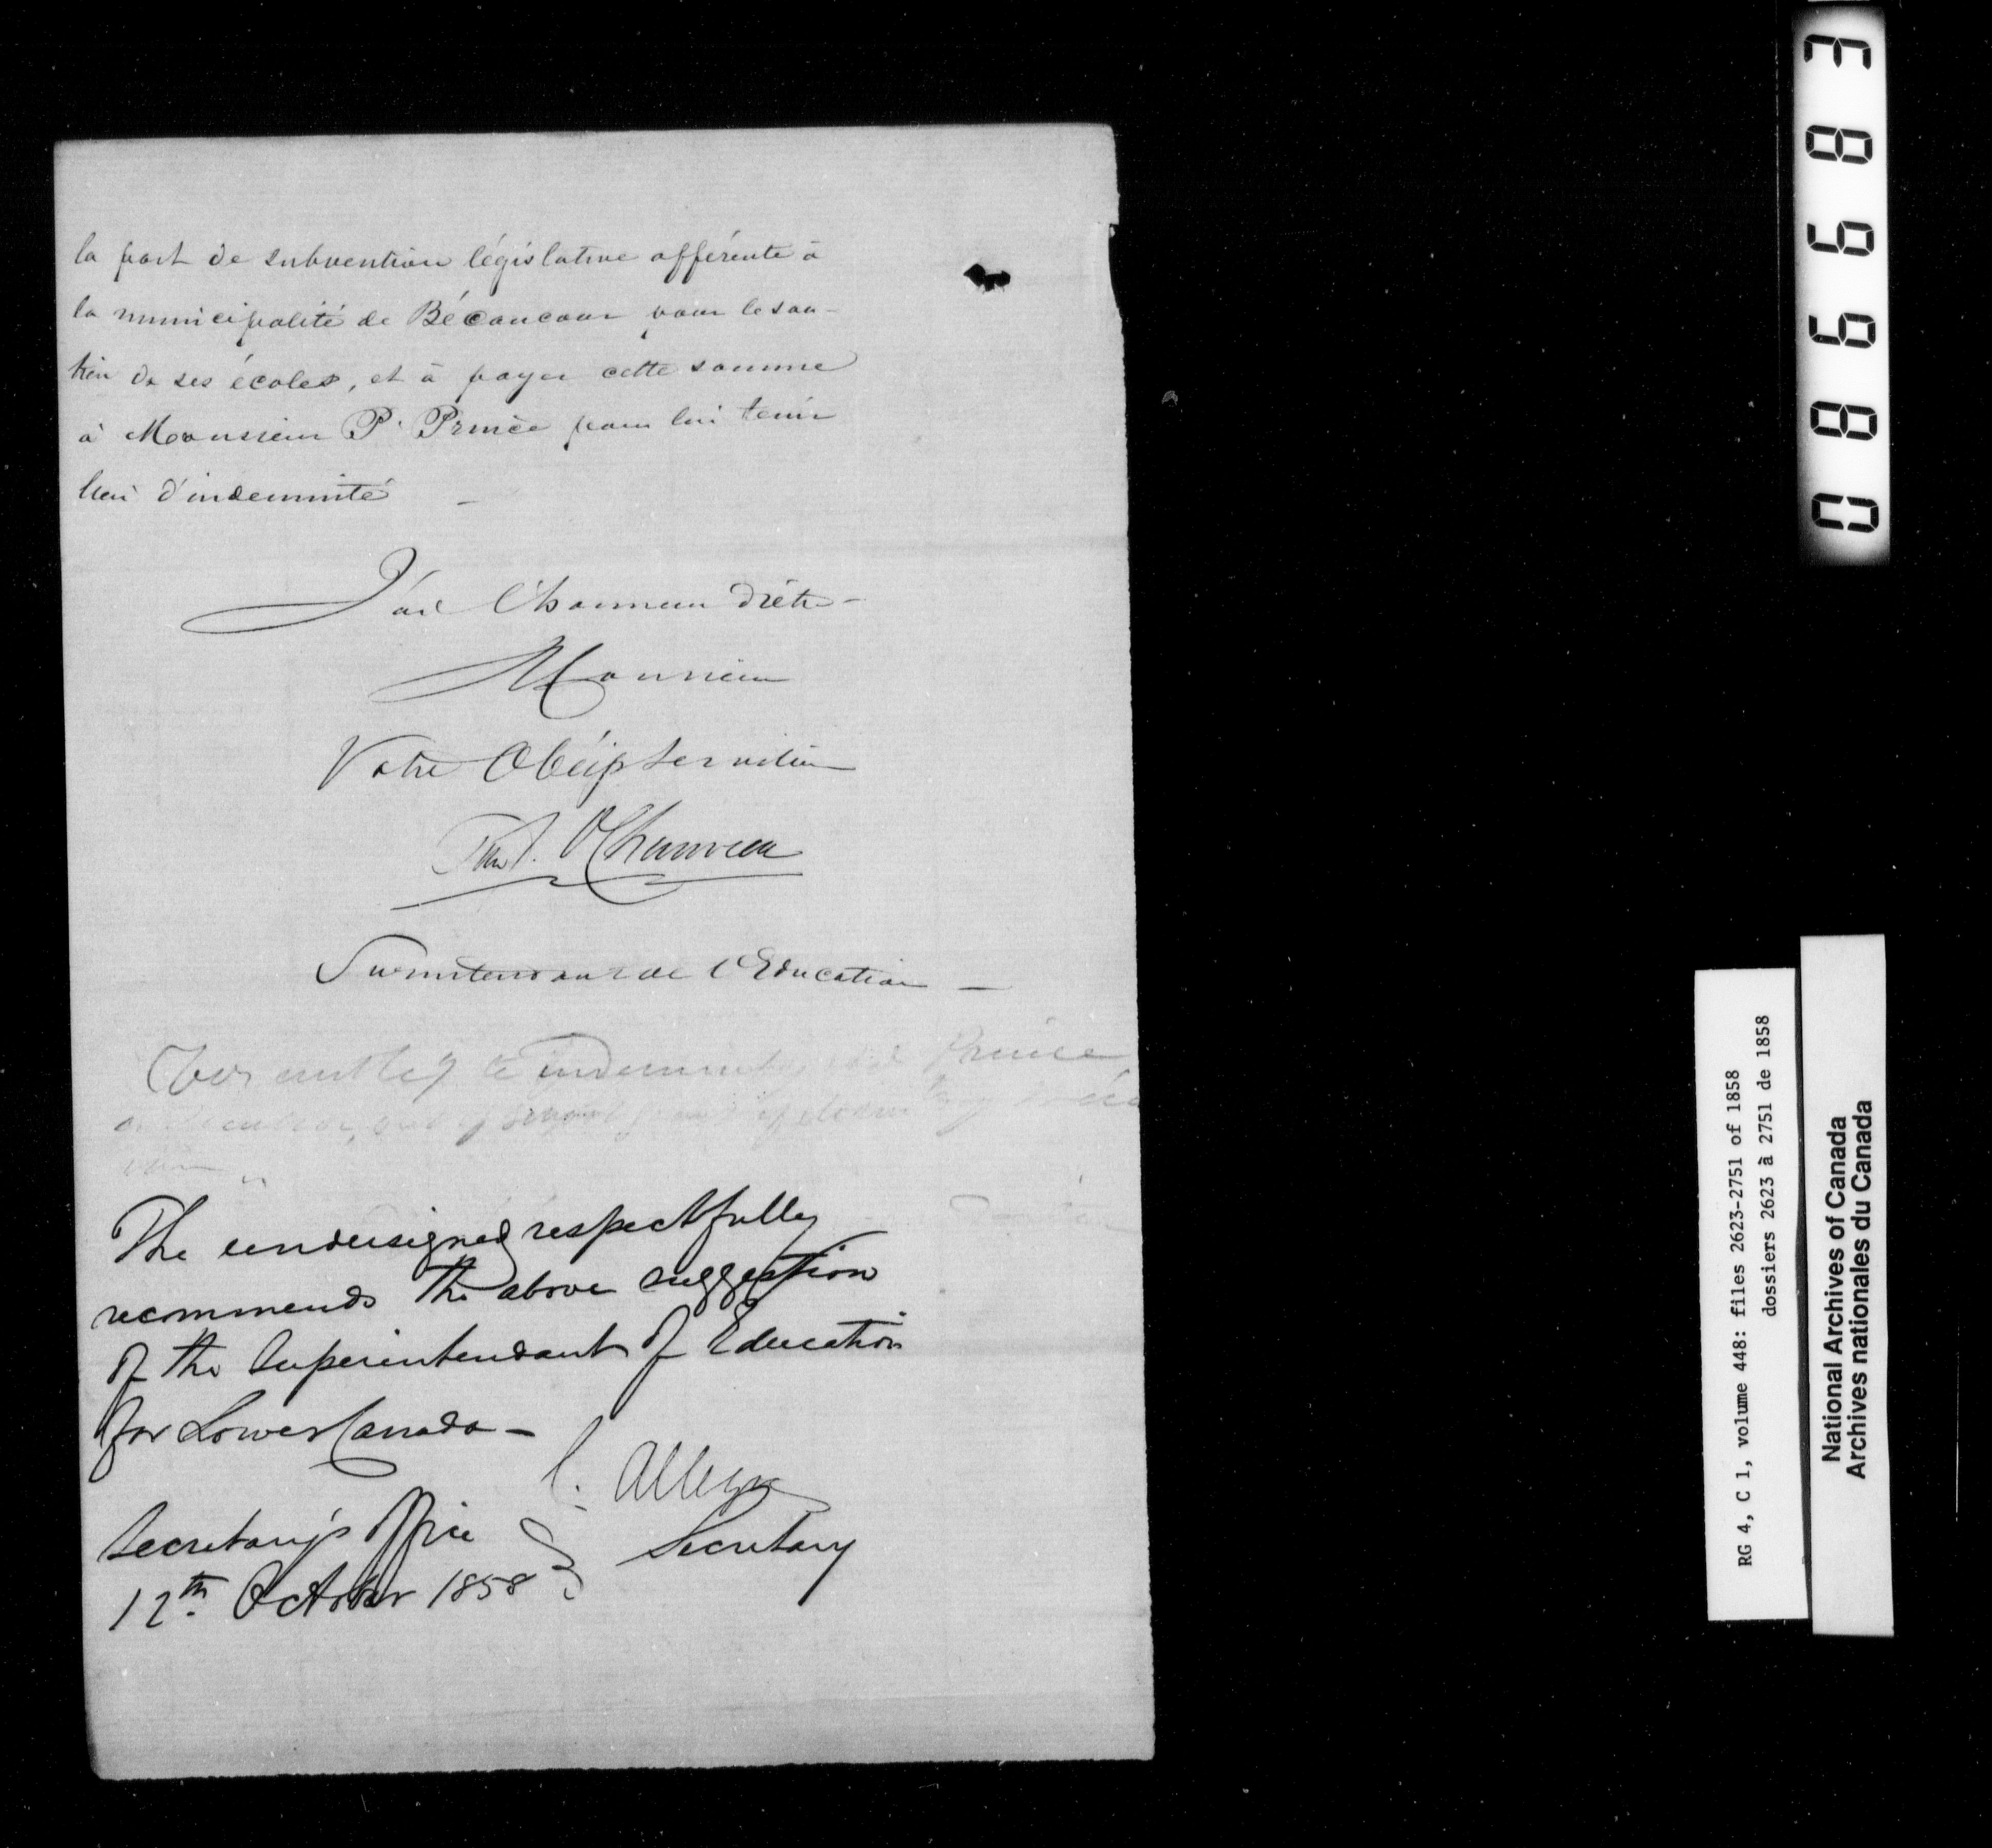 la part de subvention législative afférente à
la municipalité de Bécancour pour le sou-
tien de ses écoles, et à payer cette somme
à Monsieur P. Prince pour lui tenir
lieu d'indemnité —
J'ai l'honneur d'être
Monsieur
Votre Obéist serviteur
Chauveau
Surintendant de l'Education —
indemnity Prince
The undersigned respectfully
recommends the above suggestion
of the Superintendant of Education
for Lower Canada —
C. Alleyn
Secretary
Secretary's Office
12th October 1858
086683
RG 4, C 1, volume 448: files 2623-2751 of 1858
dossiers 2623 à 2751 de 1858
National Archives of Canada
Archives nationales du Canada